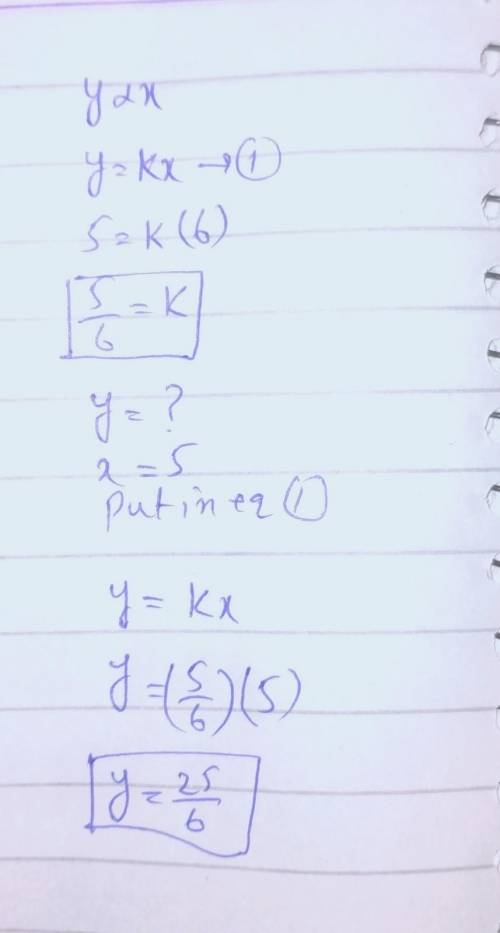 y ∝ x
y = Kx → ①
5 = K (6)
5/6 = K
y = ?
x = 5
put in eq ①
y = Kx
y = (5/6) (5)
y = 25/6